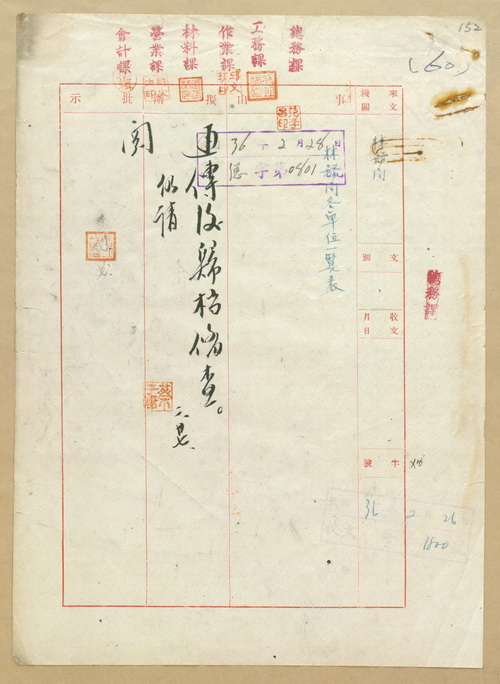 152
(60)
總務課
工務課
作業課
材料課
營業課
會計課
來文機關
事由
擬
批
示
林試所
文別
收文月日
字號
林試所各單位一覽表
36年2月28日
總字第0801
逐傳後歸檔備查。
擬請
閱
二、廿七
總務課
36 2 26
收文
1800